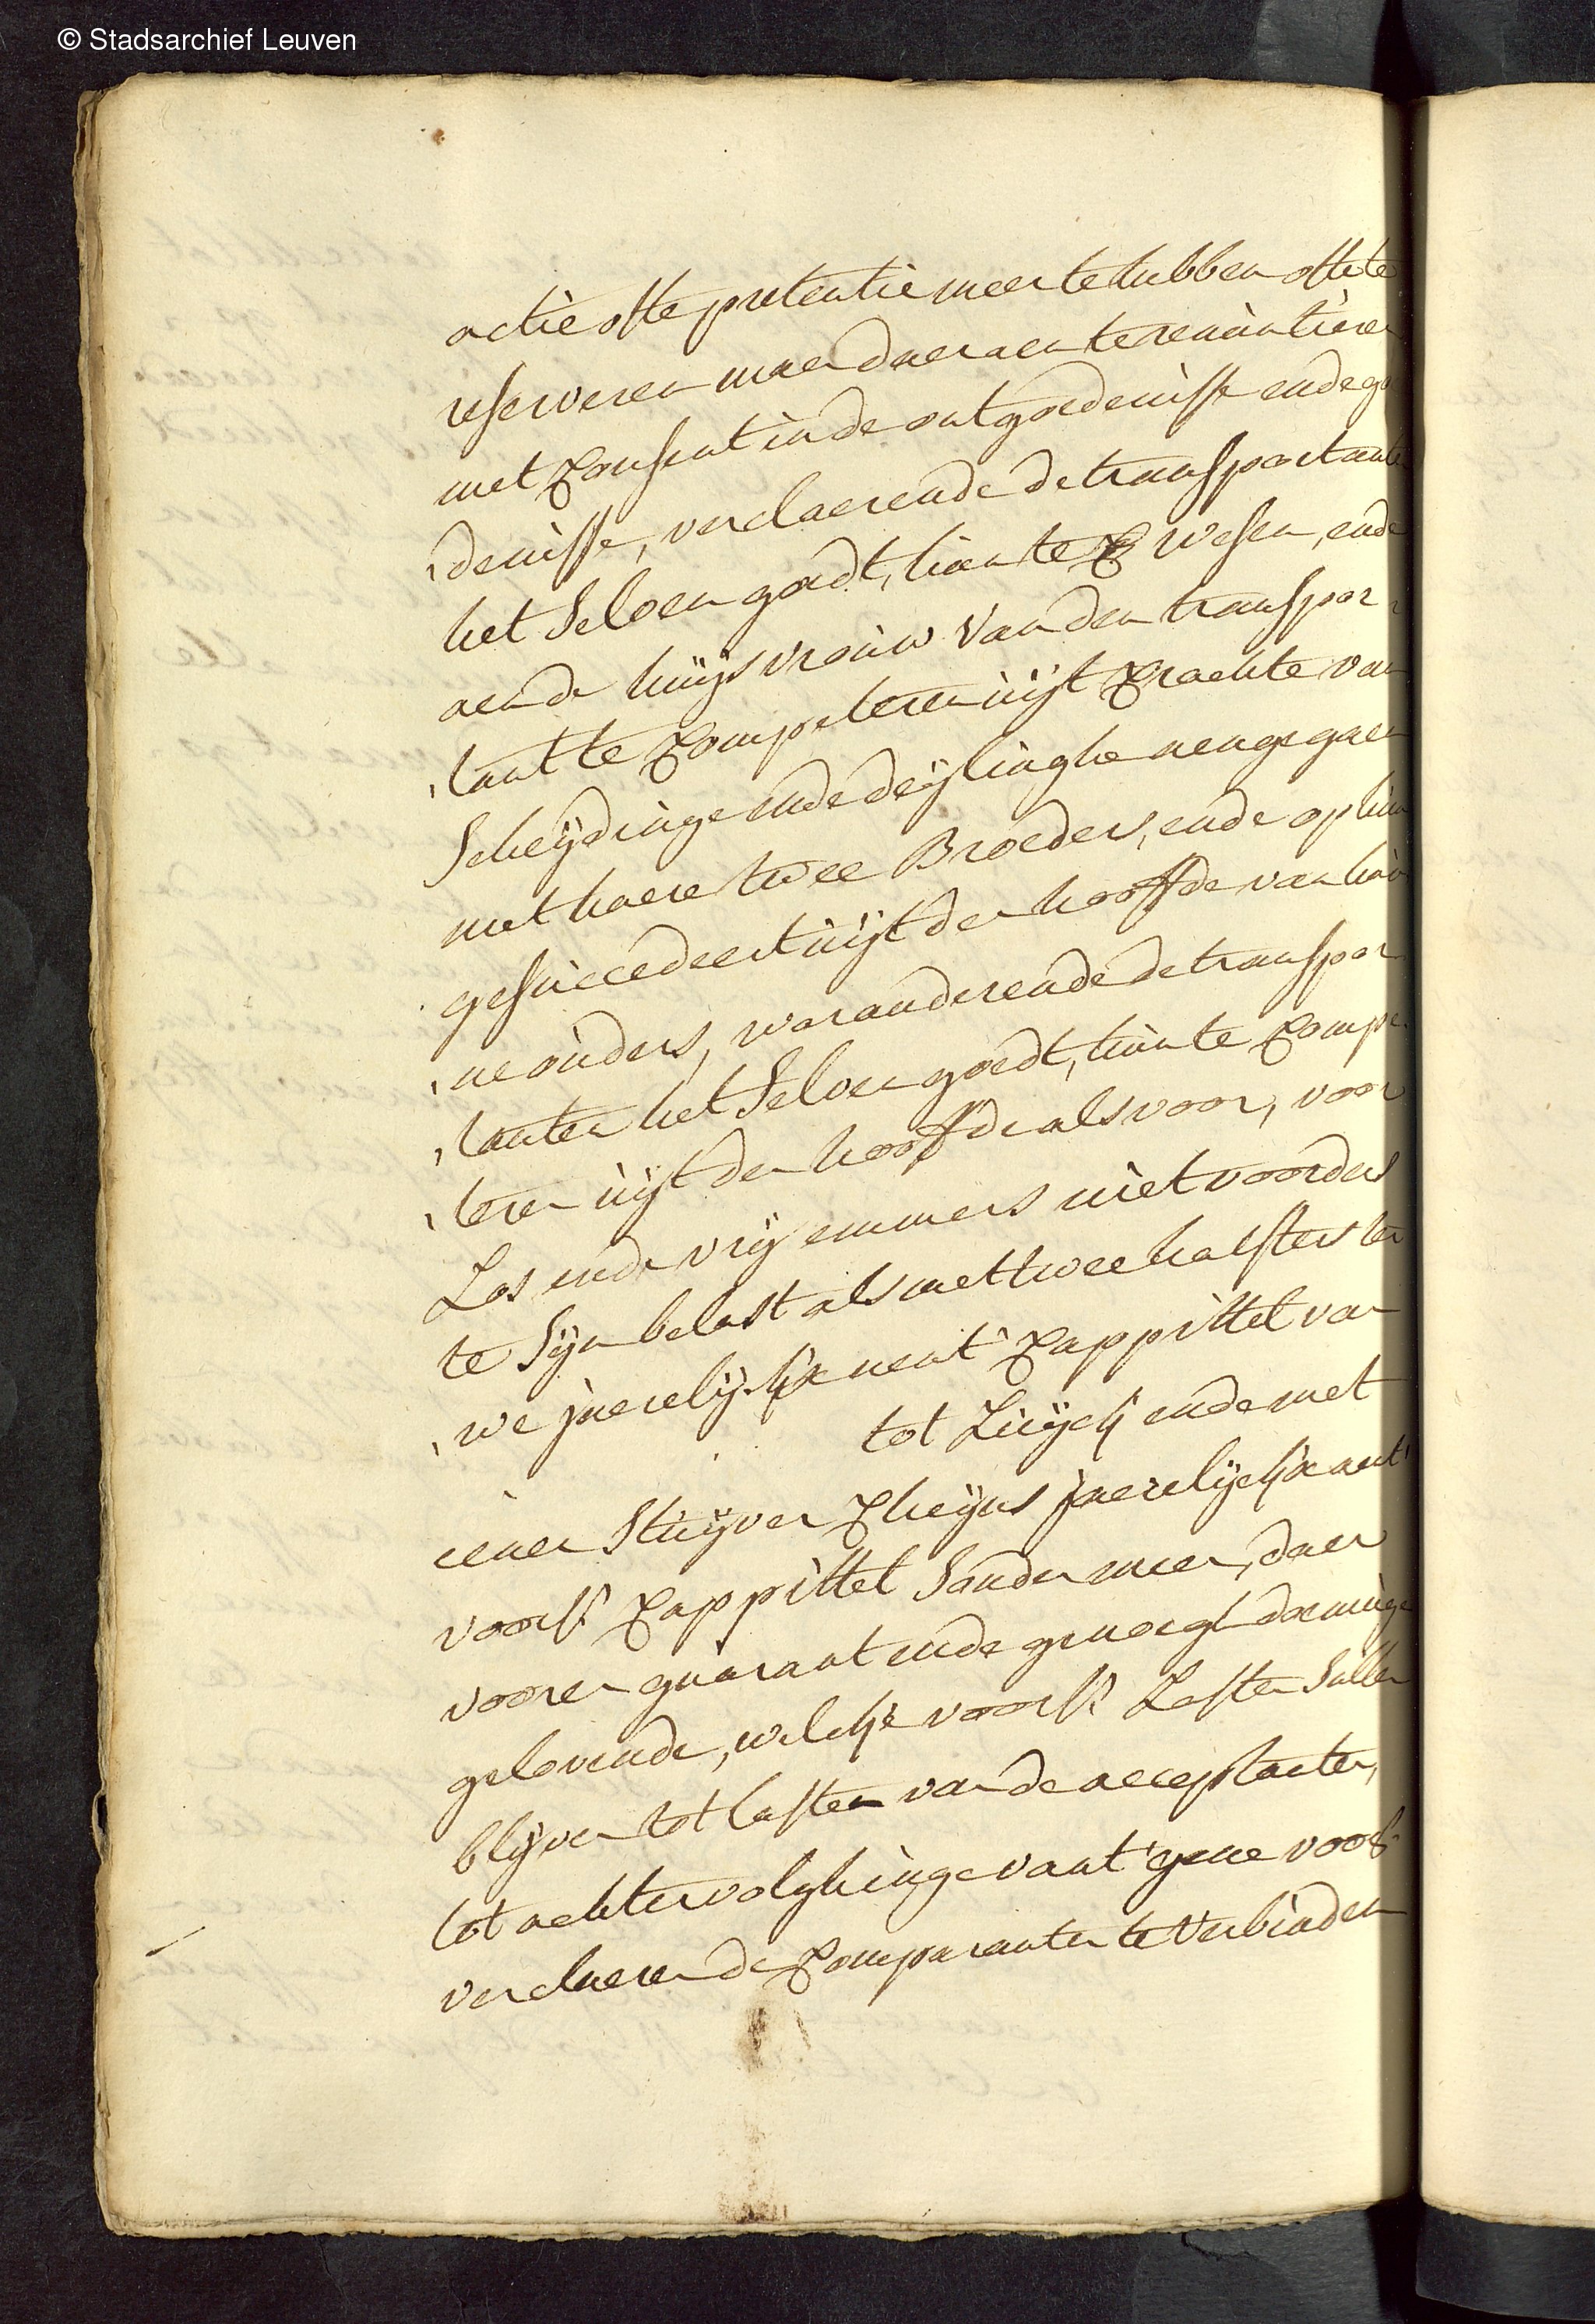 © Stadsarchief Leuven
actie ofte pretentie meer te hebben ofte te
reserveren maer daer aen te renuntieren
met Consent in de ontgoedenisse ende goe
,denisse, verclaerende de transportante
het selven goedt, hen te wesen, ende
aen de huijsvrouw van den transpor,
,tant te Competeren uijt Crachte van
scheijdinge ende deijlinghe aengegaen
met haere twee Broeders, ende op hun
gesuccedeert uijt den hooffde van hun
,ne ouders, waranderende de transpor
,tanten het selven goedt, hun te Compe
,teren uijt den hooffde als voor, voor
Los ende vrij emmers niet voorders
te sijn belast als met twee halsters
,we jaerelijckx aent Cappittel van
tot Luijck ende met
eenen stuijver Cheijns jaerelijckx aent
voors: Cappittel sonder meer, daer
vooren guarant ende genoegh doeninge
gelovende, welcke voors: Lasten sullen
blijven tot lasten van de acceptanten,
tot achtervolghinge vant' gene voors:
verclaeren de Comparanten te verbinden